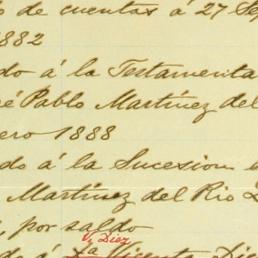 de cuentas á 27 Se
1882
do á la Testamenta
é Pablo Martinez del
ero 1888
do á la Sucesion
Martinez del Rio
, por saldo
V. Diez
do á la Vicenta Die